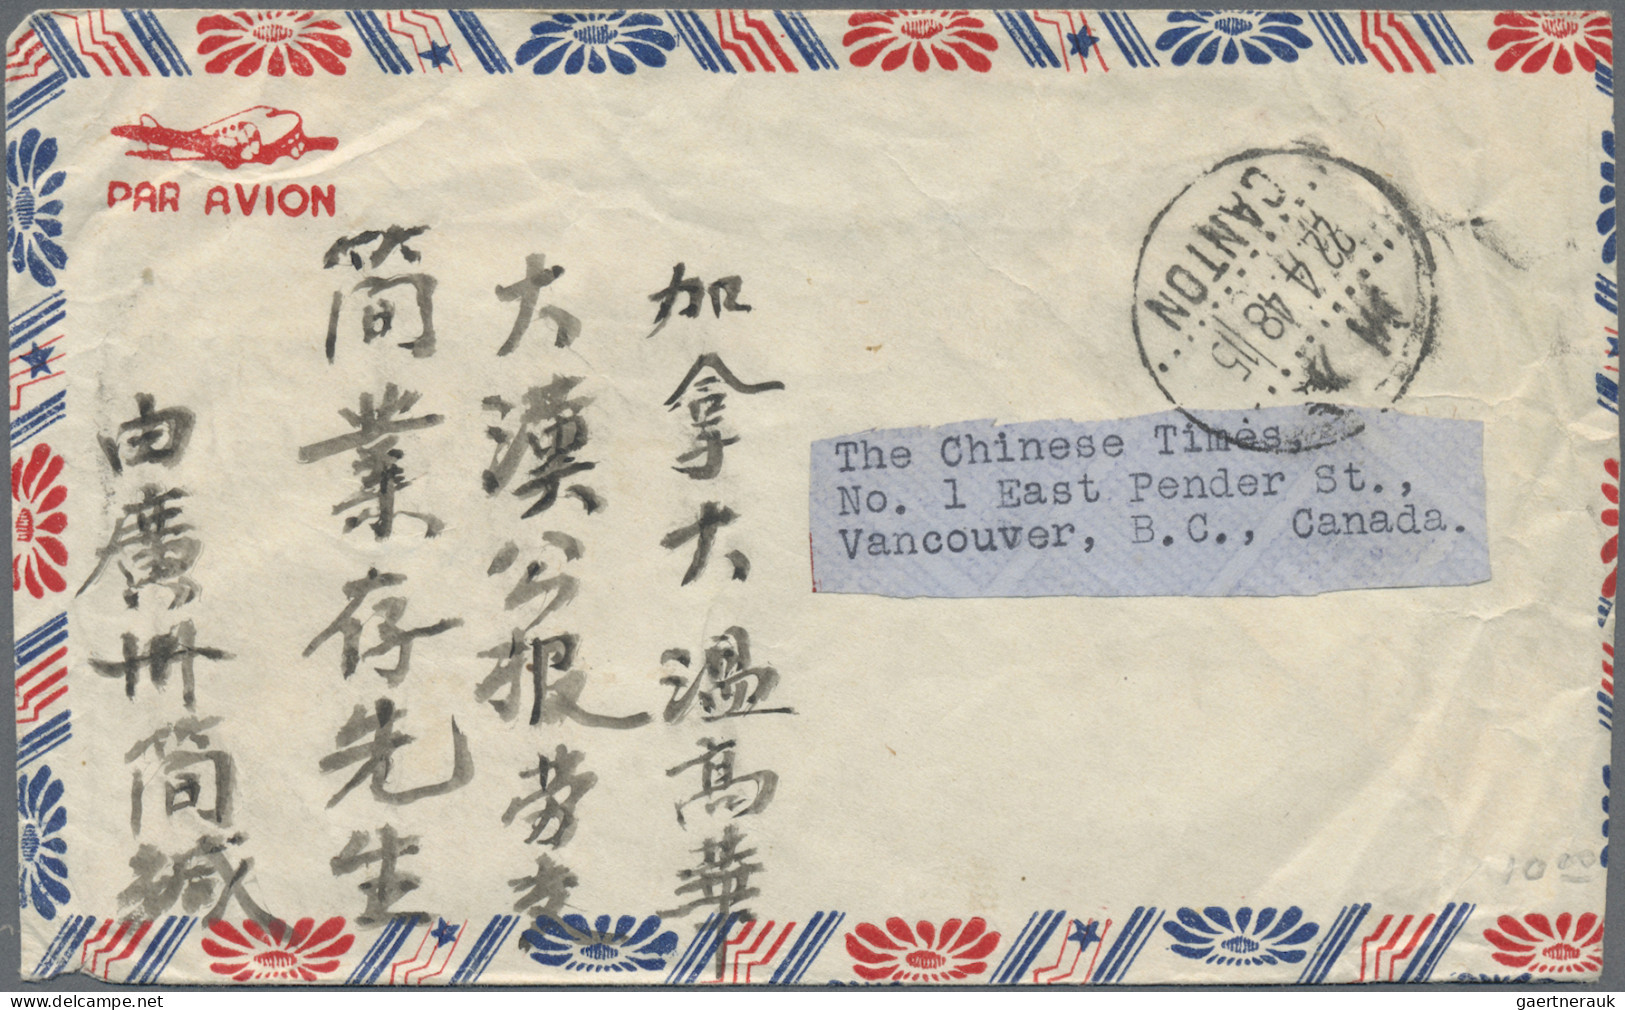 PAR AVION
加拿大溫高華
大漢公報劳交
簡業存先生
由廣州简緘
CANTON
22 4 48 15
The Chinese Times,
No. 1 East Pender St.,
Vancouver, B.C., Canada.
10 00
gaertnerauk